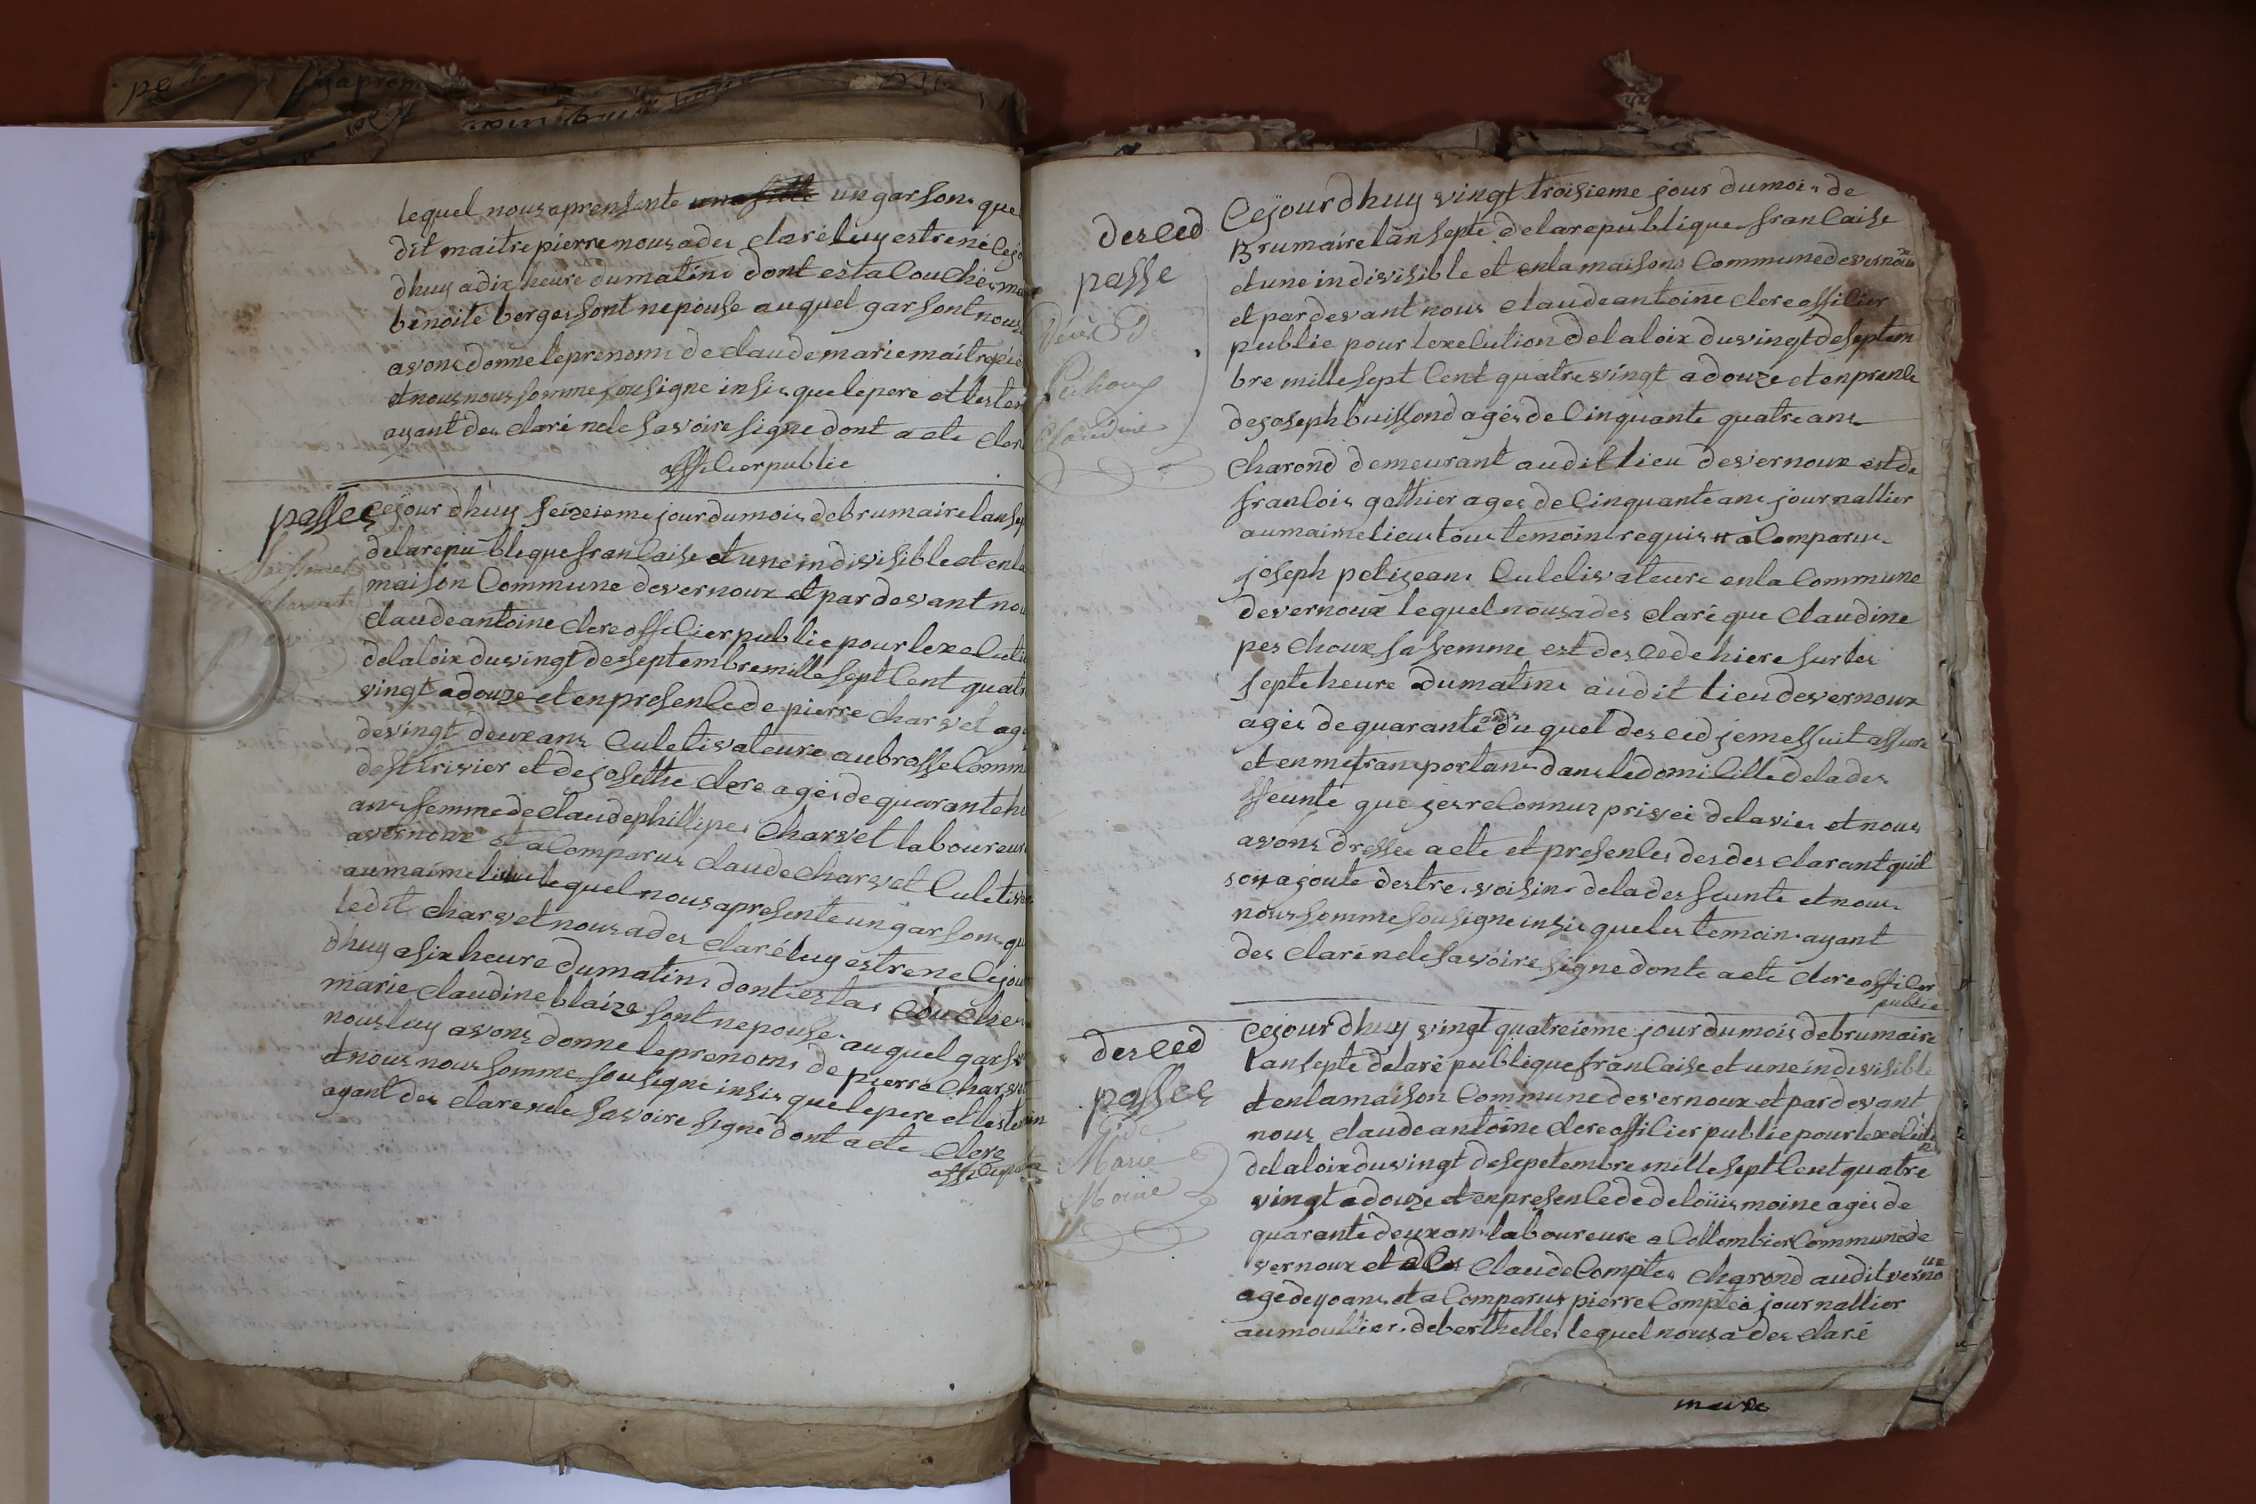 lequel nous aprensente une fille un garson que
dit maitre pierre nous a des claré luy estre né Cejo
dhuy a dix heure du matins dont est a Couchés ma
benoite berger sont nepouse auquel garsont nous
avons donne le prenoms de claude marie maitrepie
et nous nous somme sousigne insis que le pere et les tem
ayant des claré ne le savoire signe dont acte clere
offiCier public
passee
Cejour dhuy seizeieme jour du mois de brumaire lan sep
de la republeque franCaise et une indivisible et en la
maison Commune devernoux et par devant nou
claude antoine clere offiCier public pour lexeCuti
de la loix du vingt de septembre mille sept Cent quatr
vingt adouze et en presenCe de pierre charvet age
de vingt deux ans Culetivateure au brosse Comm
et de josethe clere agés de quarante hu
ans femme de claude phillipes Charvet laboureur
avernoux et a Comparus claude charvet Culetiv
au maime lieu lequel nous apresente un garsons qu
ledit charvet nous a des claré luy estre ne Cejour
dhuy a six heure du matins dont est as Couches
marie claudine blaize sont nepouse auquel garso
nous luy avons donne le prenoms de pierre Charvet
et nous nous somme sousigne insis que le pere et les temoin
ayant des clare ne le savoire signe dont acte clere
offiCie public
desCed
passe
Pechoux
Claudine
Cejour dhuy vingt troisieme jour du mois de
Brumaire lan septe de la republique franCaise
et une indivisible et en la maisons Commune devernoux
et par devant nous claude antoine clere offiCier
public pour lexeCution de la loix du vingt de septem
bre mille sept Cent quatre vingt adouze et en prenCe
de joseph buissond agés de Cinquante quatre ans
charond demeurant audit lieu devernoux est de
franCois gathier ages de Cinquante ans journallier
au maime lieu tous temoint requis et a Comparus
joseph petizeans Culetivateure en la Commune
devernoux lequel nous a des claré que claudine
pes choux sa femme est desCede hiere sur les
septe heure du matins audit lieu devernoux
agés de quarante ans du quel desCed jemessuit assure
et en me transportans dans le domiCille de la des
ffeunte que jes reConnus privéé de la vies et nous
avons dresse acte et presenCes des des clarant quil
sont ajoute destre voisins de la des feunte et nous
nous somme sousigne insis que les temoin ayant
des claré ne le savoire signe donte acte clere offiCier
public
desCed
passee
Marie
Moine
Cejour dhuy vingt quatreieme jour du mois de brumaire
lan septe de la republique franCaise et une indivisible
et en la maison Commune devernoux et par devant
nous claude antoine clere offiCier public pour lexeCutio
de la loix du vingt de sepetembre mille sept Cent quatre
vingt adouze et en presenCe de deloüis moine agés de
quarante deux ans laboureure a Collombier Commune de
vernoux et de claude Comptes charond audit vernoux
age de 40 ans et a Comparus pierre Comptes journallier
au moullier deberthelles lequel nous a des claré
maire